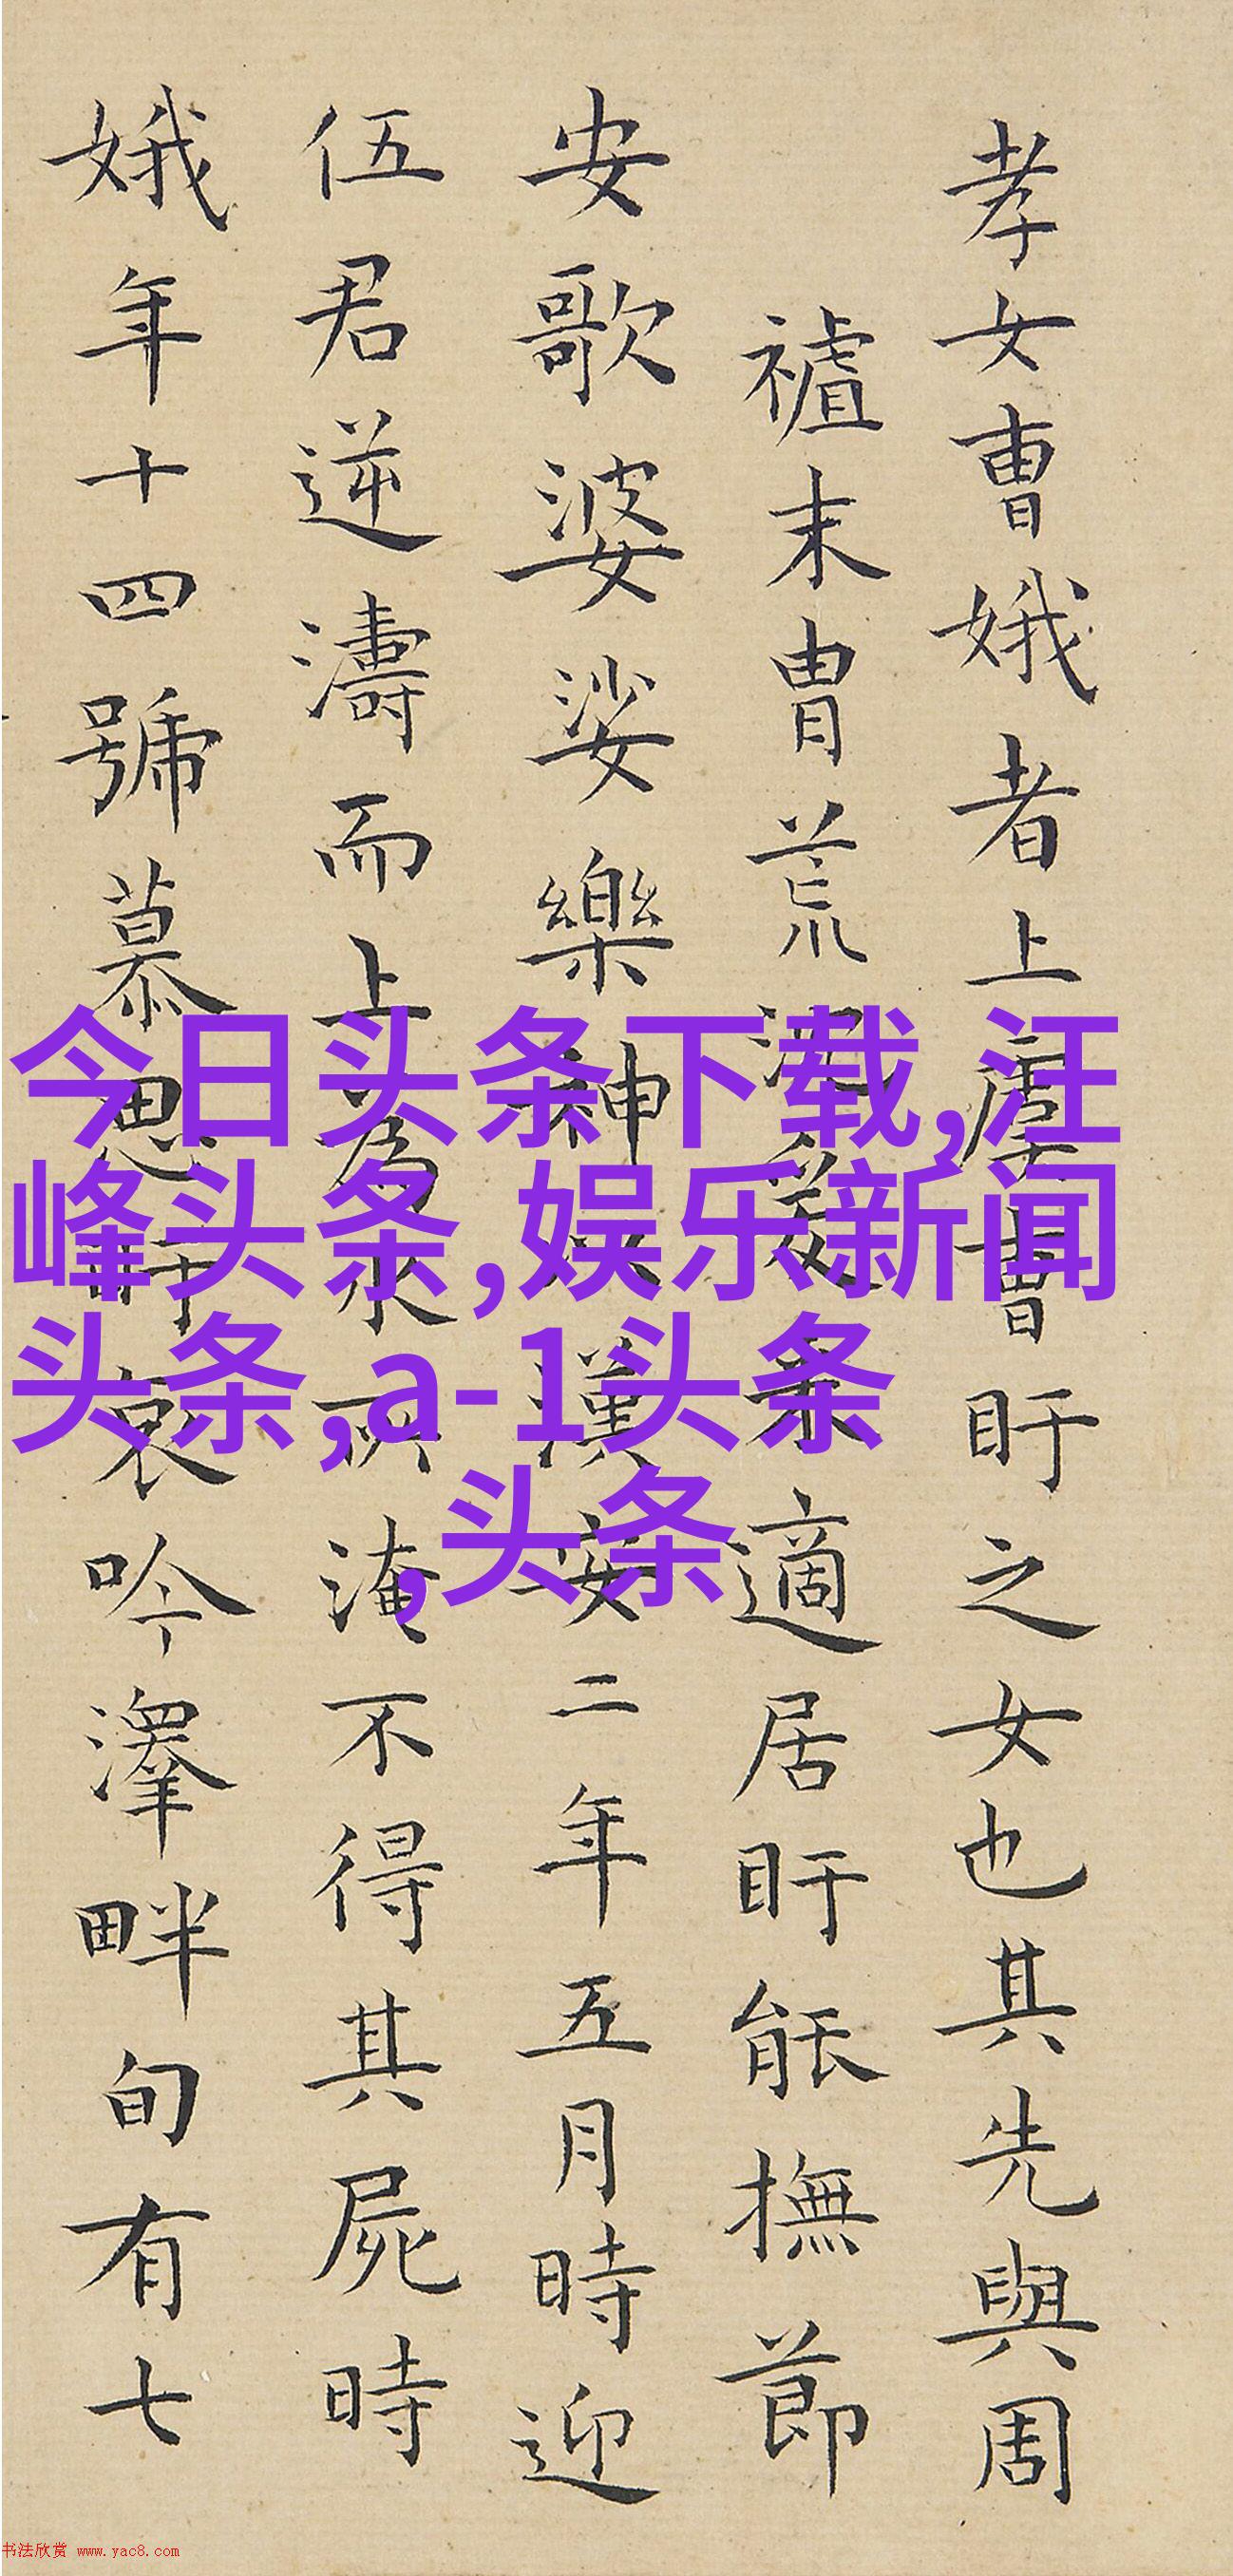 孝女曹娥者上虞曹盱之女也其先與周
禮末胄荒沉爰来適居盱能撫節
安歌婆娑樂神漢安二年五月時迎
伍君逆濤而上為水所淹不得其屍時
娥年十四號慕思盱哀吟澤畔旬有七
今日头条下载,汪
峰头条,娱乐新闻
头条,a-1头条
,头条
书法欣赏 www.yac8.com